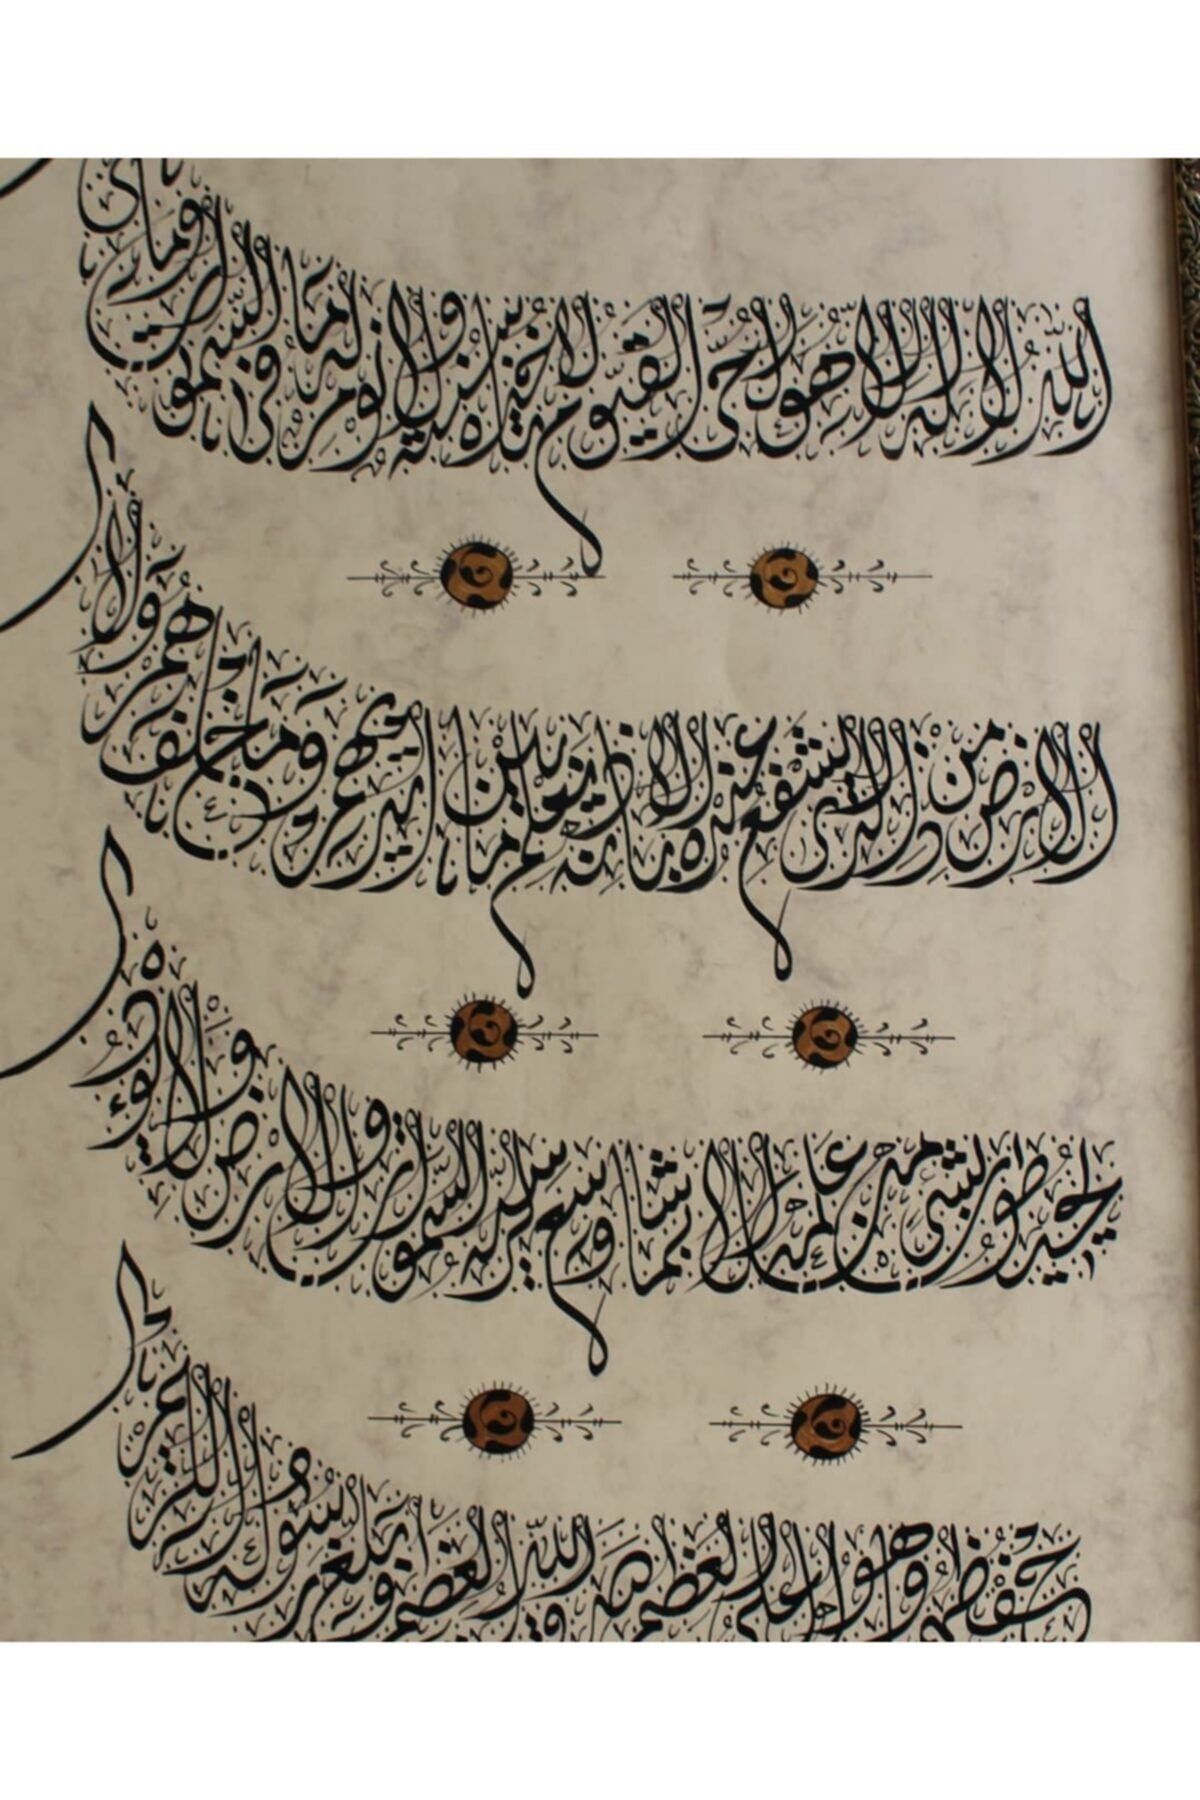 الله لا إله إلا هو الحي القيوم لا تأخذه سنة ولا نوم له ما في السموات وما في
الأرض من ذا الذي يشفع عنده إلا بإذنه يعلم ما بين أيديهم وما خلفهم ولا
يحيطون بشيء من علمه إلا بما شاء وسع كرسيه السموات والأرض ولا يؤده
حفظهما وهو العلي العظيم صدق الله العظيم وبلغ رسوله الكريم